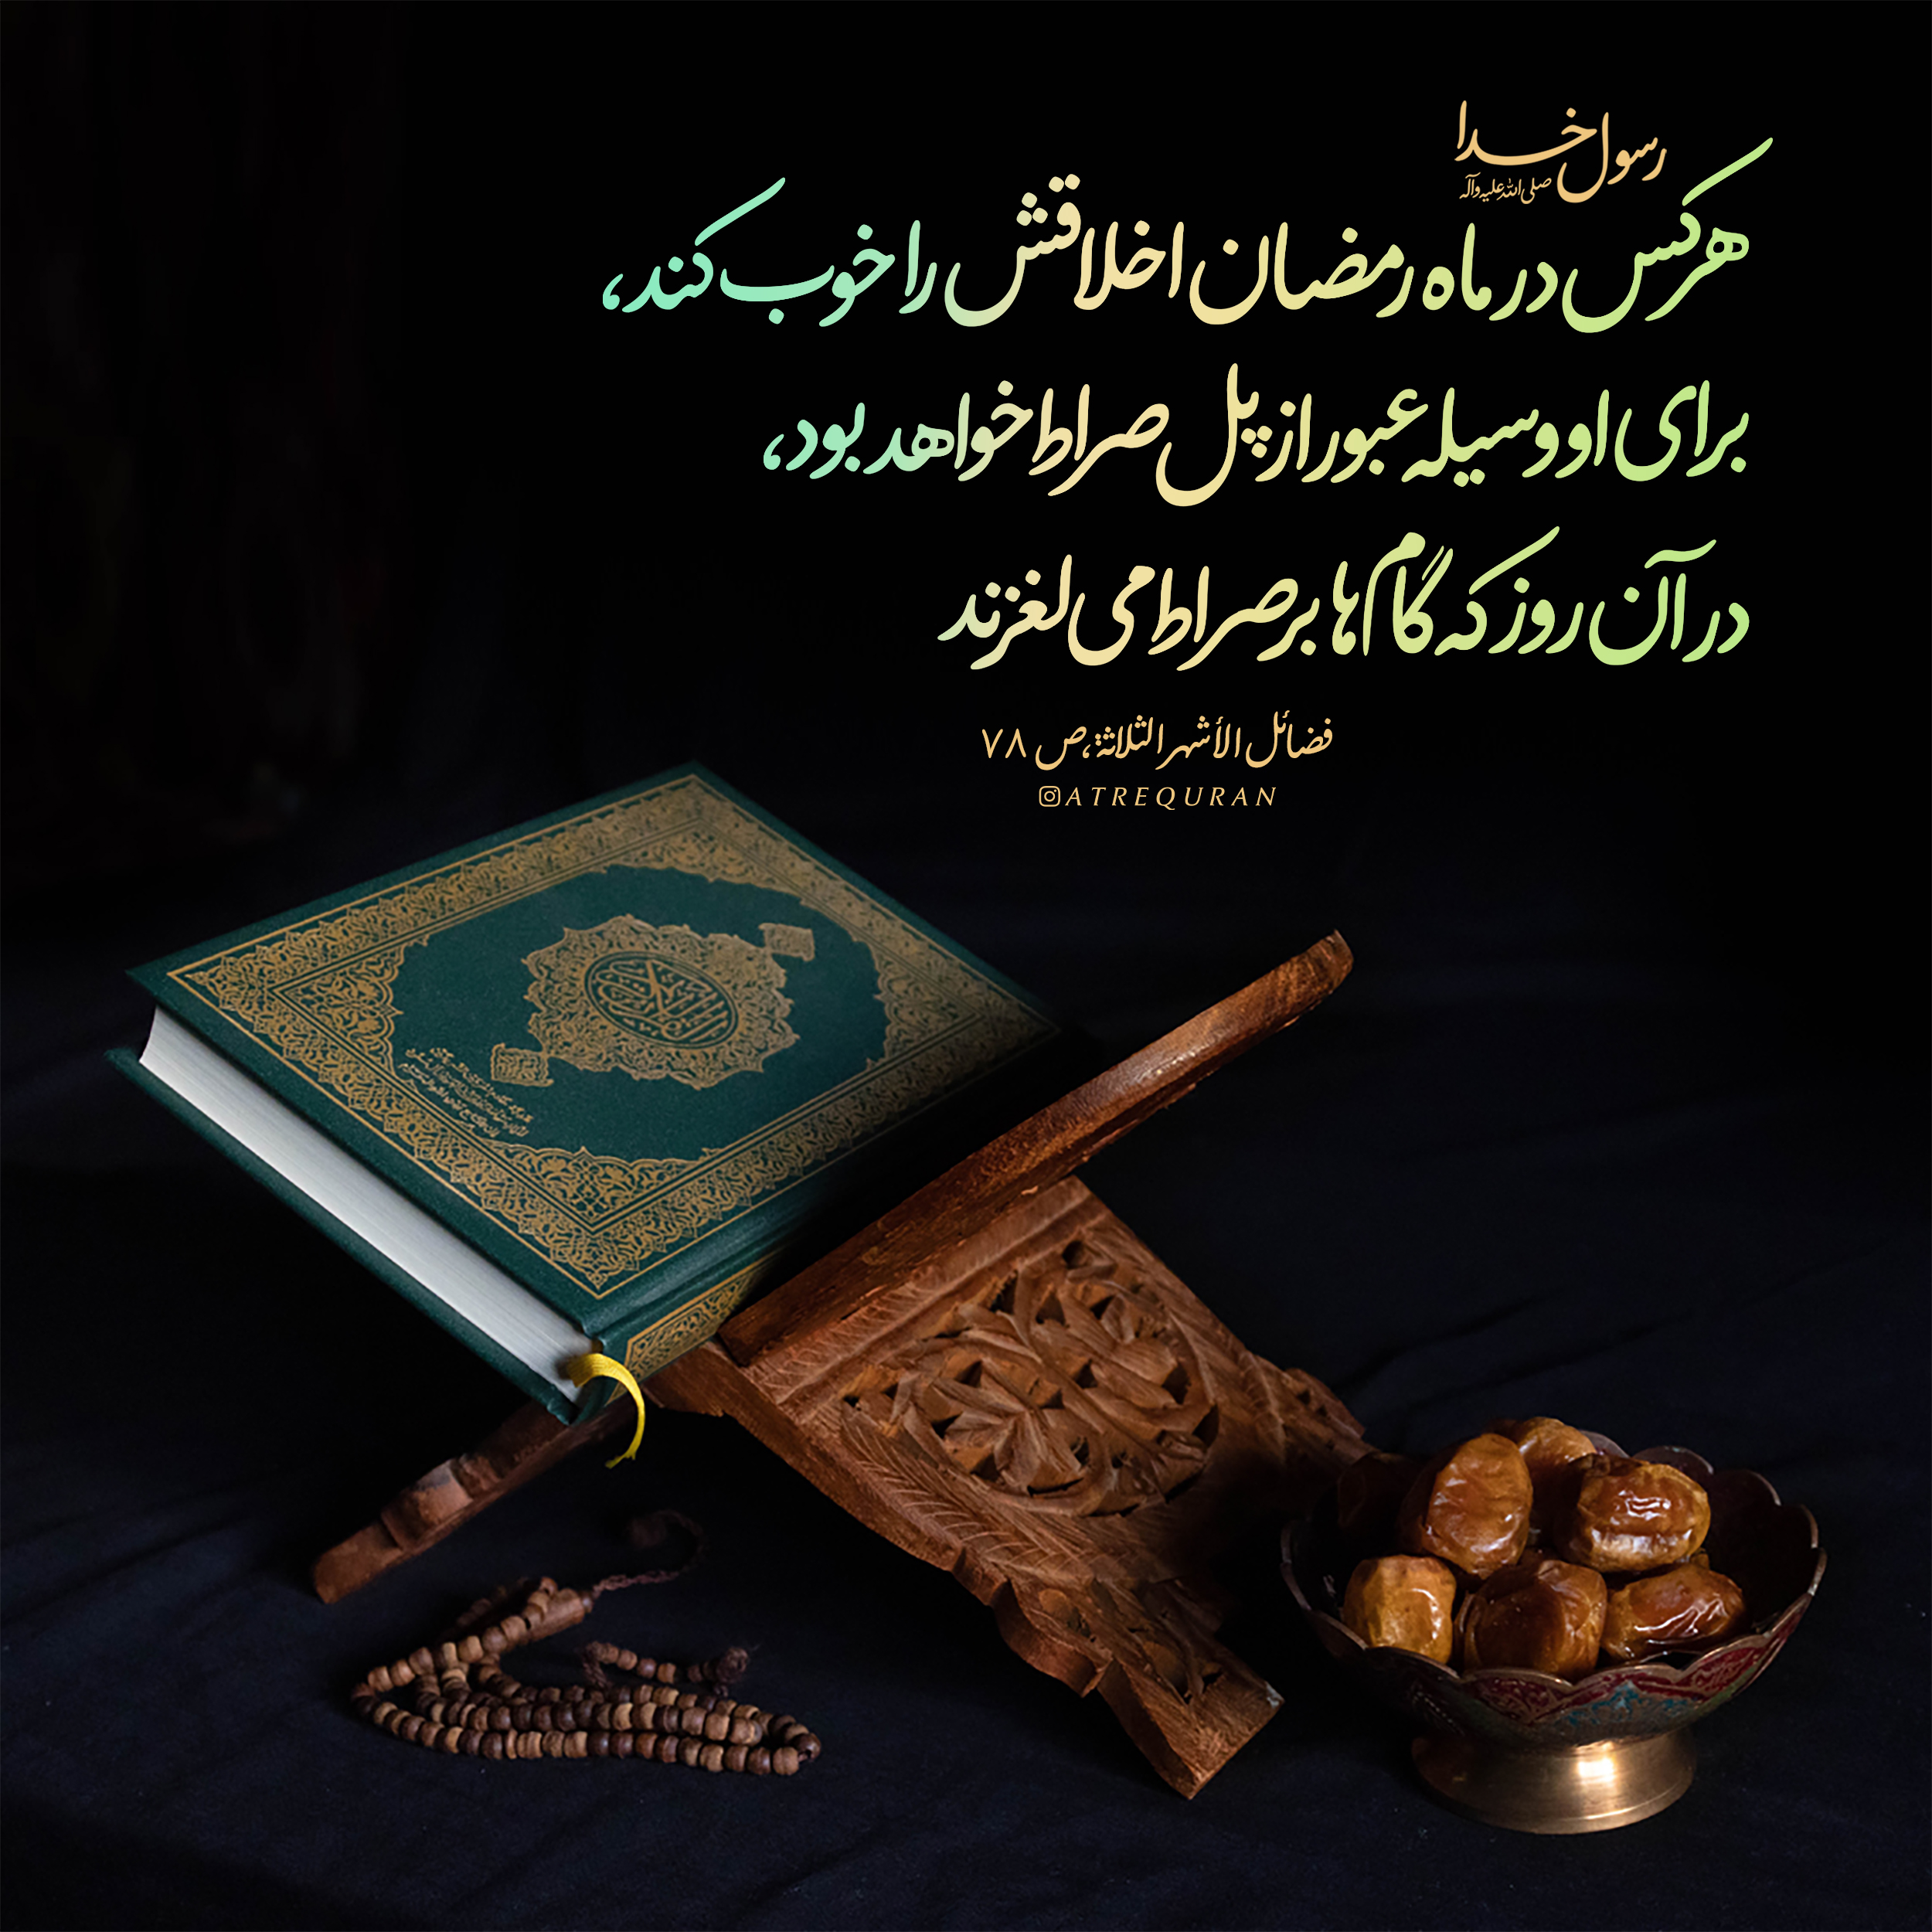 رسول خدا
صلی الله علیه وآله
هرکس در ماه رمضان اخلاقش را خوب کند،
برای او وسیله عبور از پل صراط خواهد بود،
در آن روز که گام ها بر صراط می لغزند
فضائل الأشهر الثلاثة، ص ۷۸
ATREQURAN
القرآن الكريم